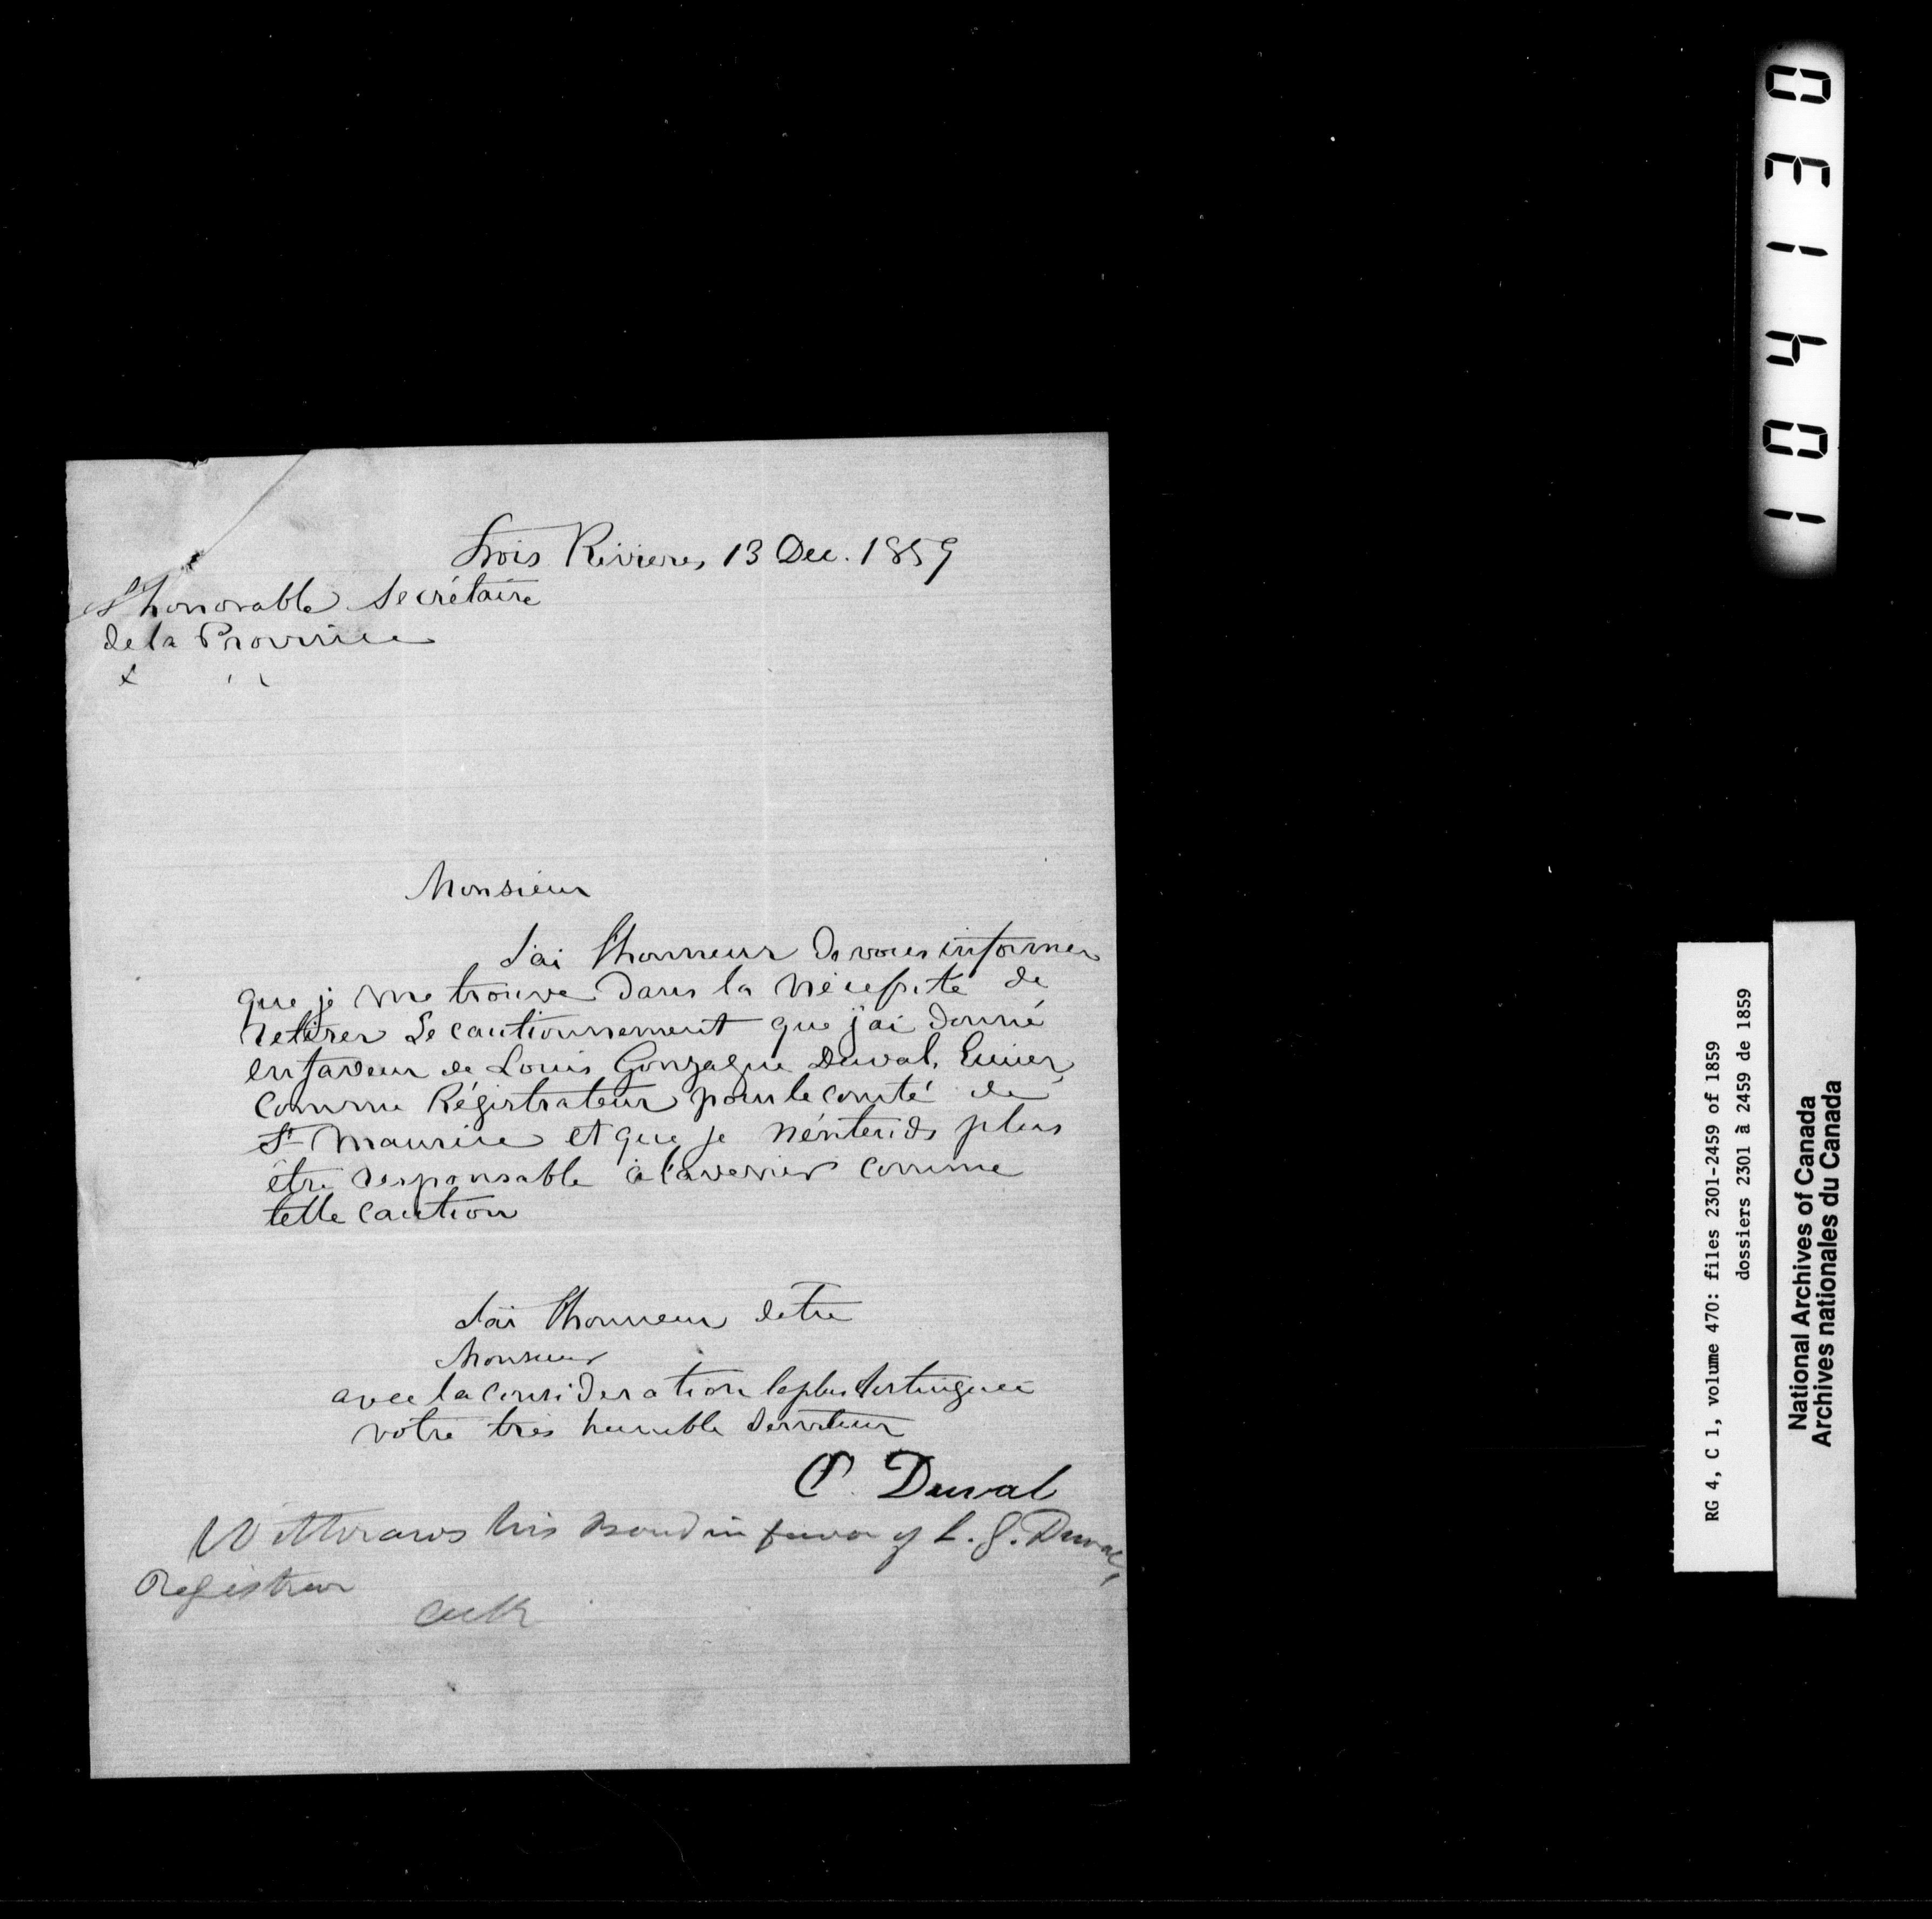 Trois Rivieres, 13 Dec. 1859
L'honorable Secrétaire
de la Province
Monsieur
J'ai l'honneur de vous informer
que je me trouve dans la nécessité de
retirer le cautionnement que j'ai donné
en faveur de Louis Gonzague Duval, Ecuier,
comme Régistrateur pour le comté de
St Maurice et que je n'éntends plus
être responsable à l'avenir comme
telle caution
J'ai l'honneur detre
Monsieur
avec la consideration la plus distinguée
votre très humble serviteur
Duval
Withdraws his bond in favor of L. G. Duval,
Registrar
014130
RG 4, C 1, volume 470: files 2301-2459 of 1859
dossiers 2301 à 2459 de 1859
National Archives of Canada
Archives nationales du Canada